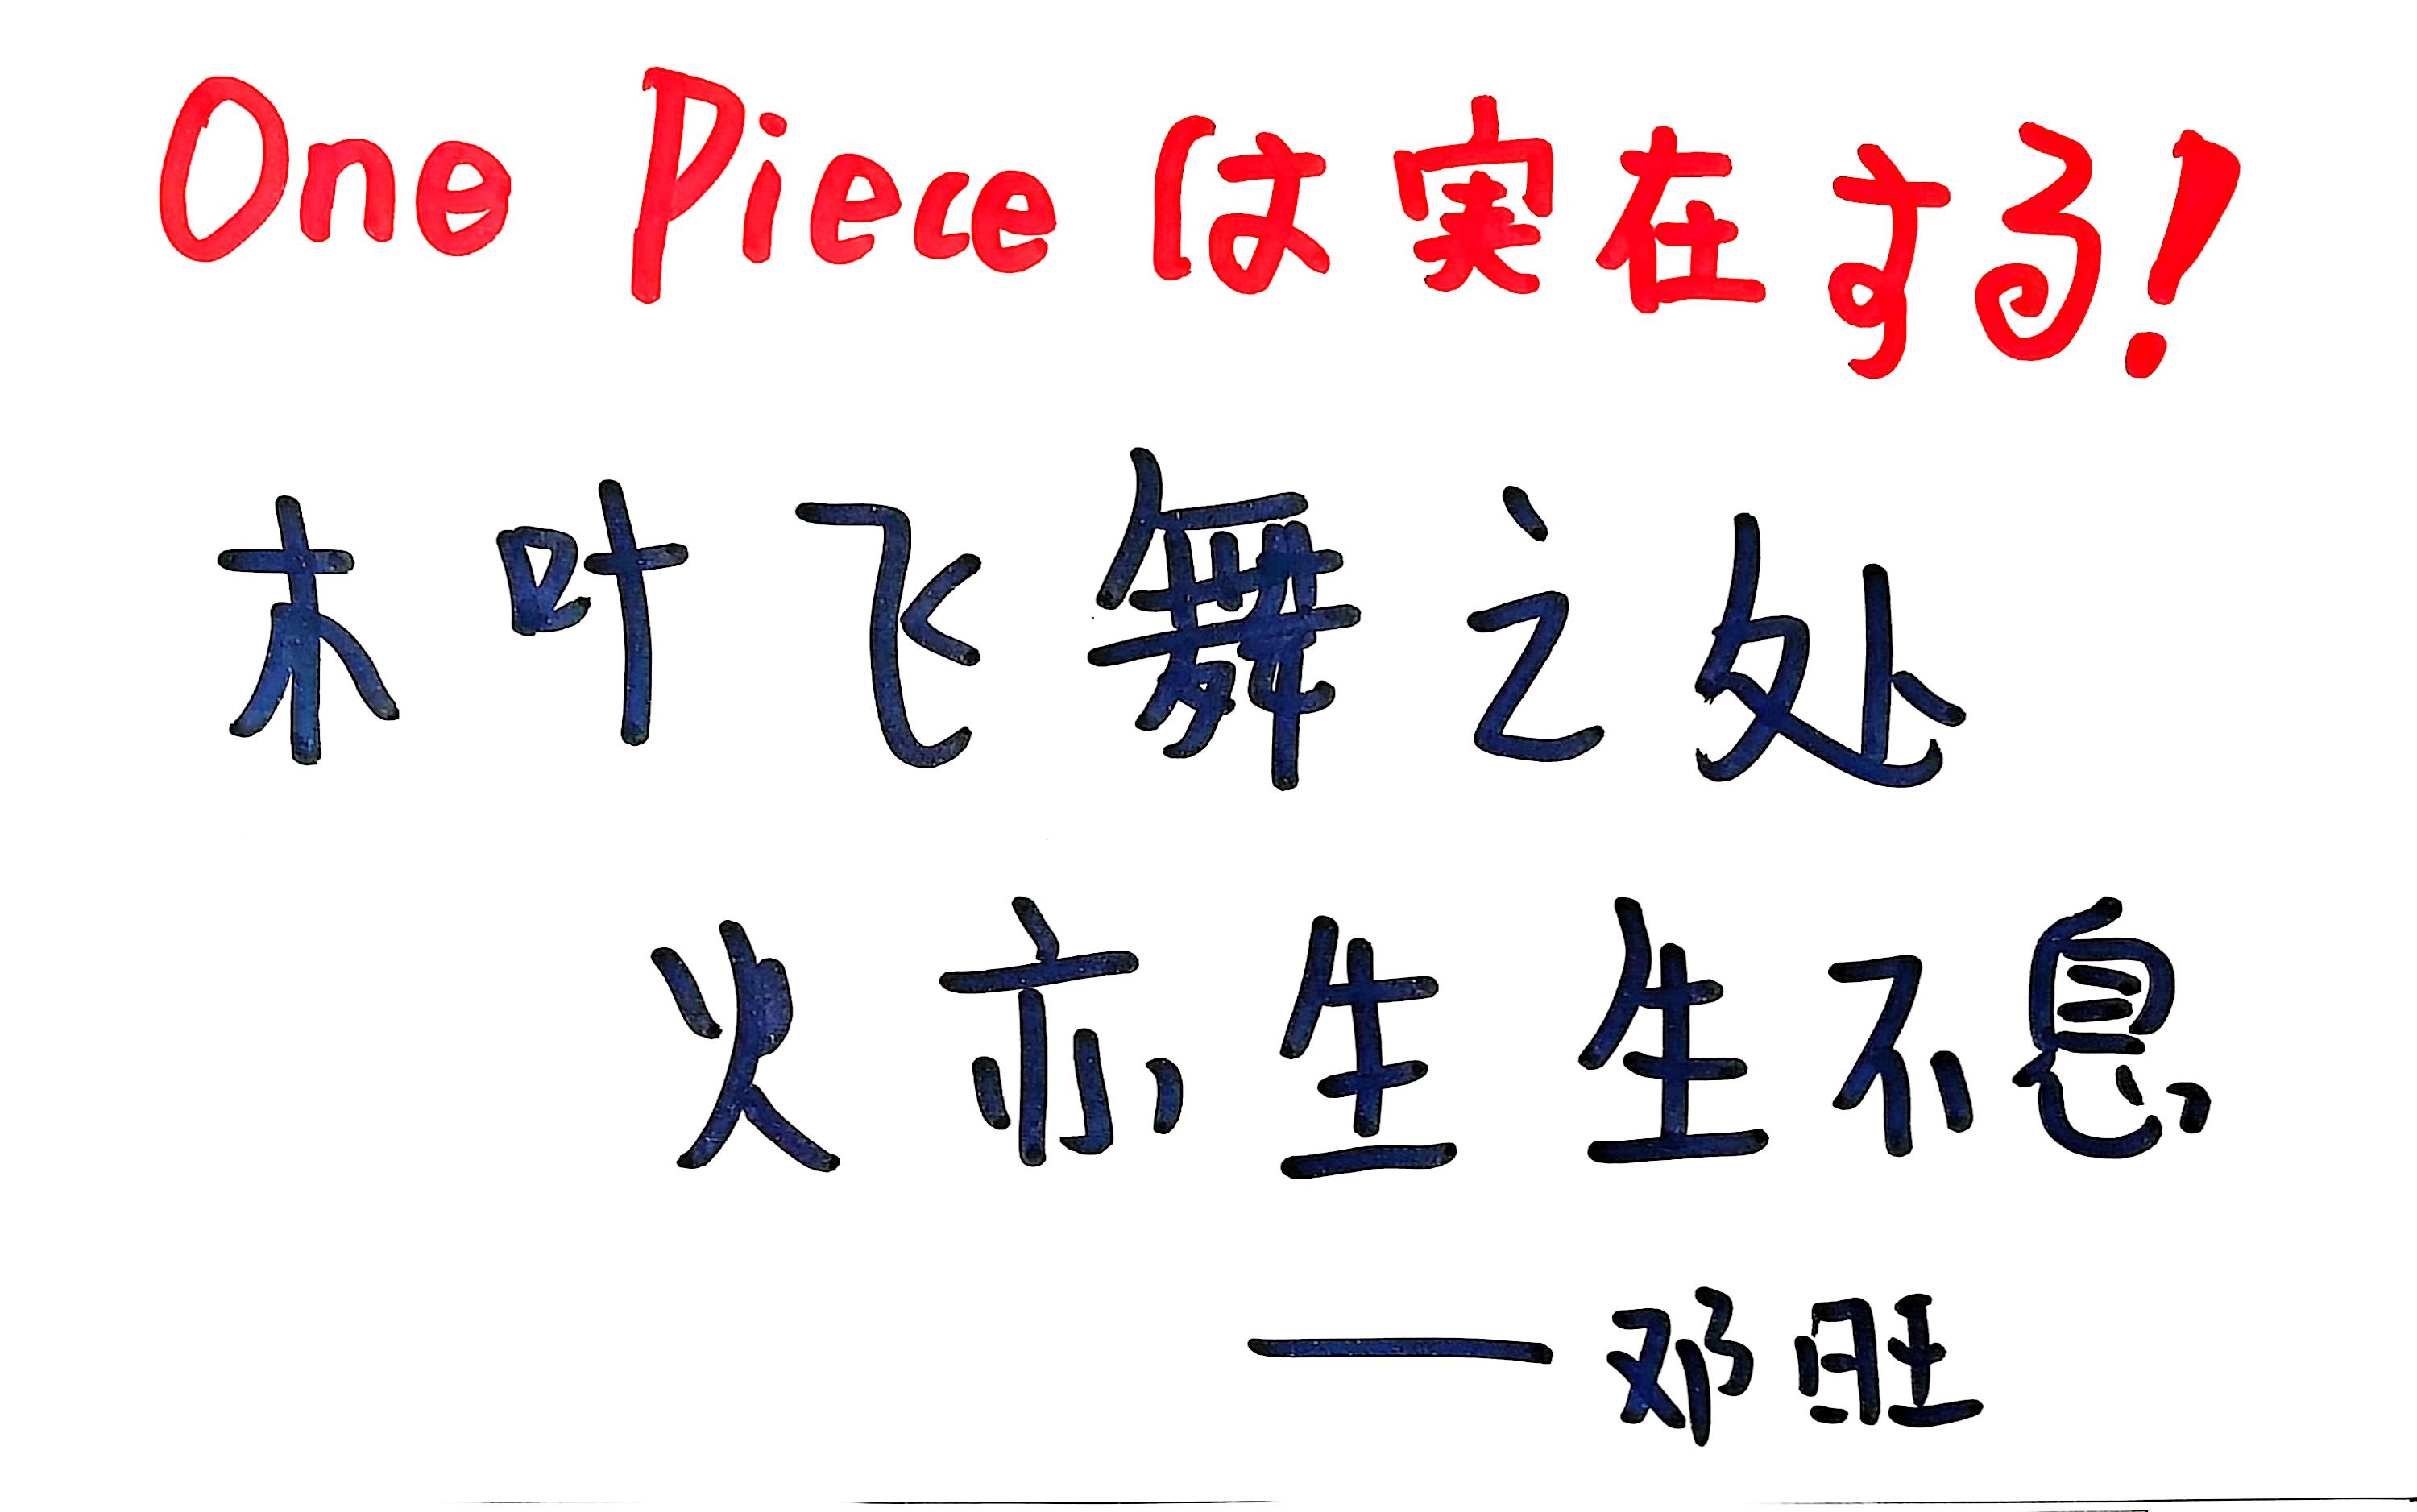 One Pieceは実在する!
木叶飞舞之处
火亦生生不息
——邓旺